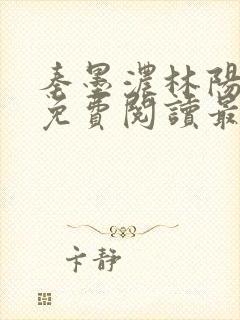 秦墨濃林陽
免費閱讀最
卞靜